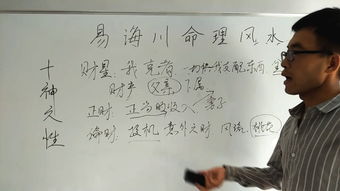 易海川命理风水
十神之性
财星：我克者 一切物我支配东西
财产 父亲 下属
正财：正当的收入 妻子
偏财：投机 意外之财 风流 桃花